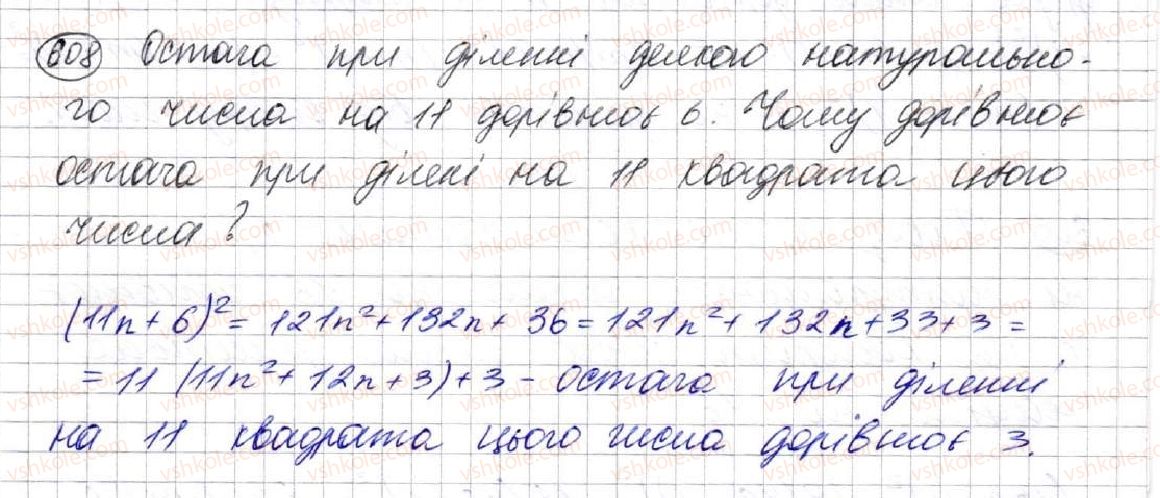 608 Остача при діленні деякого натурально-
го числа на 11 дорівнює 6. Чому дорівнює
остача при ділені на 11 квадрата цього
числа?
(11n + 6)² = 121n² + 132n + 36 = 121n² + 132n + 33 + 3 =
= 11 (11n² + 12n + 3) + 3 - остача при діленні
на 11 квадрата цього числа дорівнює 3.